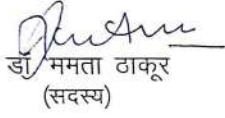 डॉ ममता ठाकूर
(सदस्य)